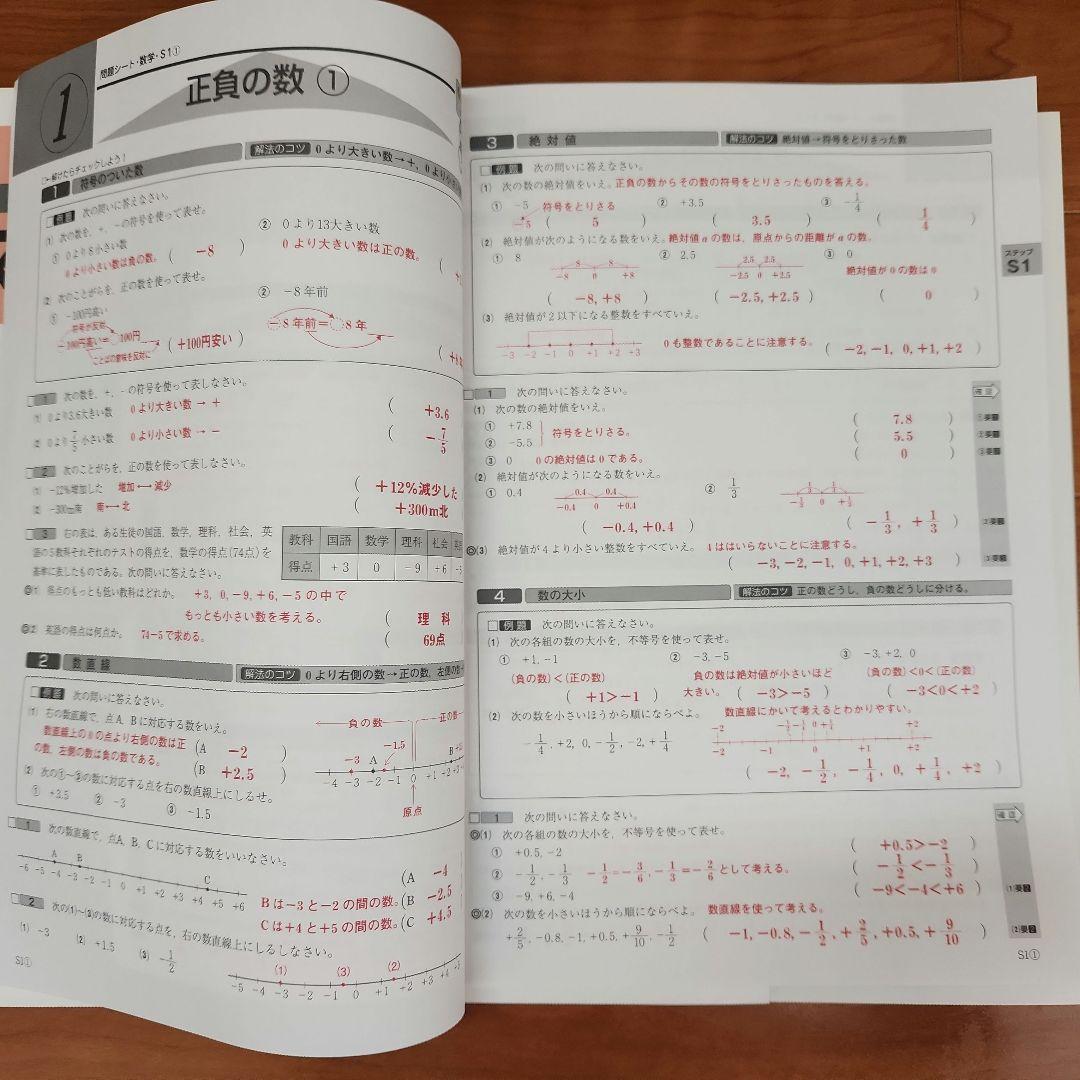 1
問題シート・数学・S1①
正負の数 ①
□←解けたらチェックしよう！
1 符号のついた数
解法のコツ 0より大きい数→+，0より小さい
例題 次の問いに答えなさい。
(1) 次の数を，+，-の符号を使って表せ。
① 0より8小さい数 ② 0より13大きい数
0より小さい数は負の数。 ( -8 ) 0より大きい数は正の数。
(2) 次のことがらを，正の数を使って表せ。
① -100円高い ② -8年前
符号が反対
-100円高い= 100円 ( +100円安い ) -8年前= 8年
ことばの意味を反対に
1 次の数を，+，-の符号を使って表しなさい。
(1) 0より3.6大きい数 0より大きい数 → + ( +3.6
(2) 0より7/5小さい数 0より小さい数 → - ( -7/5
2 次のことがらを，正の数を使って表しなさい。
(1) -12%増加した 増加←→減少 ( +12%減少した
(2) -300m南 南←→北 ( +300m北
3 右の表は，ある生徒の国語，数学，理科，社会，英
語の5教科それぞれのテストの得点を，数学の得点(74点)を
基準に表したものである。次の問いに答えなさい。
教科 国語 数学 理科 社会
得点 +3 0 -9 +6
◎(1) 得点のもっとも低い教科はどれか。 +3, 0, -9, +6, -5の中で
もっとも小さい数を考える。 ( 理科
◎(2) 英語の得点は何点か。 74-5で求める。 ( 69点
2 数直線
解法のコツ 0より右側の数→正の数，左側の数
例題 次の問いに答えなさい。
(1) 右の数直線で，点A，Bに対応する数をいえ。
数直線上の0の点より右側の数は正
の数，左側の数は負の数である。
(A -2 )
(B +2.5 )
負の数 正の数
-1.5
-3 A B
-4 -3 -2 -1 0 +1 +2
原点
(2) 次の①~③の数に対応する点を右の数直線上にしるせ。
① +3.5 ② -3 ③ -1.5
1 次の数直線で，点A，B，Cに対応する数をいいなさい。
A B C
-6 -5 -4 -3 -2 -1 0 +1 +2 +3 +4 +5 +6
(A -4
Bは-3と-2の間の数。(B -2.5
Cは+4と+5の間の数。(C +4.5
2 次の(1)~(3)の数に対応する点を，右の数直線上にしるしなさい。
(1) -3 (2) +1.5 (3) -1/2
(1) (3) (2)
-5 -4 -3 -2 -1 0 +1 +2 +3 +4
S1①
3 絶対値
解法のコツ 絶対値→符号をとりさった数
例題 次の問いに答えなさい。
(1) 次の数の絶対値をいえ。正負の数からその数の符号をとりさったものを答える。
① -5 符号をとりさる ② +3.5 ③ -1/4
-5 ( 5 ) ( 3.5 ) ( 1/4 )
(2) 絶対値が次のようになる数をいえ。絶対値aの数は，原点からの距離がaの数。
① 8 ② 2.5 ③ 0
8 8 2.5 2.5 絶対値が0の数は0
-8 0 +8 -2.5 0 +2.5
( -8, +8 ) ( -2.5, +2.5 ) ( 0 )
(3) 絶対値が2以下になる整数をすべていえ。
-3 -2 -1 0 +1 +2 +3 0も整数であることに注意する。 ( -2, -1, 0, +1, +2 )
ステップ
S1
1 次の問いに答えなさい。
確認
(1) 次の数の絶対値をいえ。
① +7.8 ( 7.8 )
② -5.5 符号をとりさる。 ( 5.5 )
③ 0 0の絶対値は0である。 ( 0 )
(2) 絶対値が次のようになる数をいえ。
① 0.4 ② 1/3
0.4 0.4 1/3 1/3
-0.4 0 +0.4 -1/3 0 +1/3
( -0.4, +0.4 ) ( -1/3, +1/3 )
◎(3) 絶対値が4より小さい整数をすべていえ。 4ははいらないことに注意する。
( -3, -2, -1, 0, +1, +2, +3 )
4 数の大小
解法のコツ 正の数どうし，負の数どうしに分ける。
例題 次の問いに答えなさい。
(1) 次の各組の数の大小を，不等号を使って表せ。
① +1, -1 ② -3, -5 ③ -3, +2, 0
(負の数)<(正の数) 負の数は絶対値が小さいほど (負の数)<0<(正の数)
( +1>-1 ) 大きい。 ( -3>-5 ) ( -3<0<+2 )
(2) 次の数を小さいほうから順にならべよ。 数直線にかいて考えるとわかりやすい。
-1/4, +2, 0, -1/2, -2, +1/4
-2 -1/2 -1/4 0 +1/4 +2
-2 -1 0 +1 +2
( -2, -1/2, -1/4, 0, +1/4, +2 )
1 次の問いに答えなさい。
確認
◎(1) 次の各組の数の大小を，不等号を使って表せ。
① +0.5, -2 ( +0.5>-2 )
② -1/2, -1/3 -1/2=-3/6, -1/3=-2/6として考える。 ( -1/2<-1/3 )
③ -9, +6, -4 ( -9<-4<+6 )
◎(2) 次の数を小さいほうから順にならべよ。 数直線を使って考える。
+2/5, -0.8, -1, +0.5, +9/10, -1/2 ( -1, -0.8, -1/2, +2/5, +0.5, +9/10 )
S1①